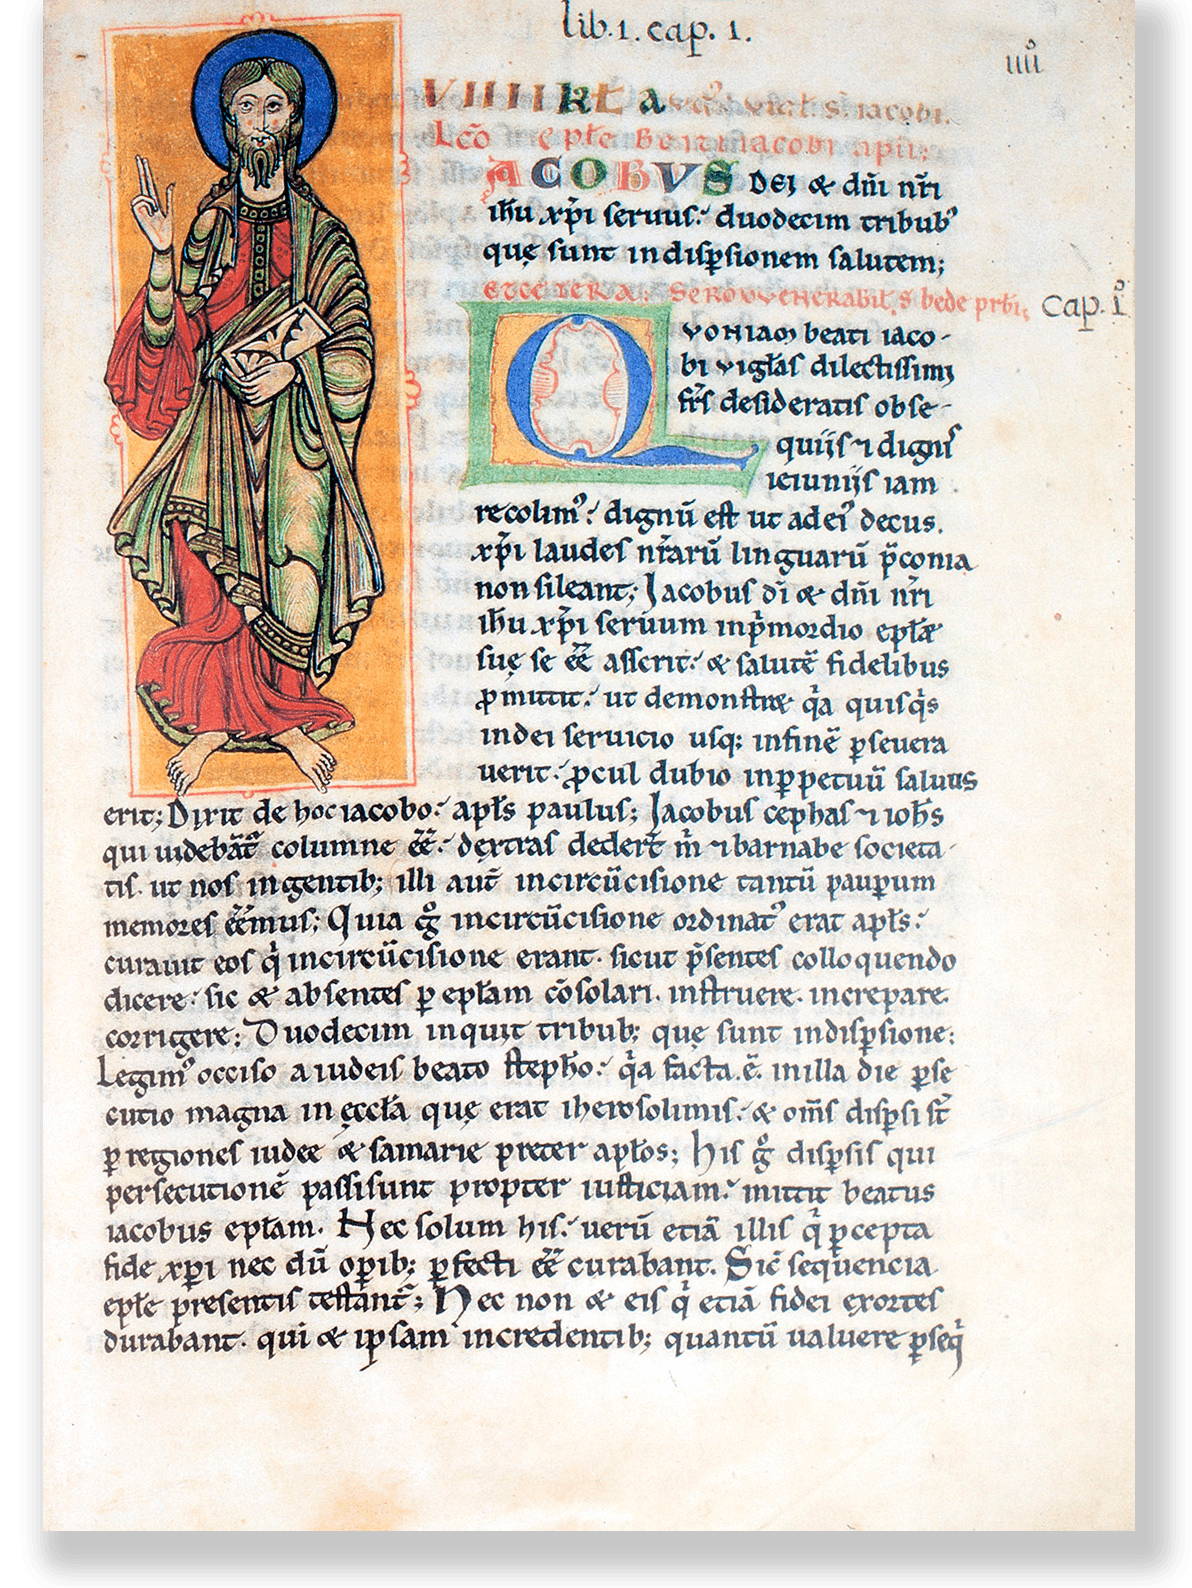 lib.1. cap. 1.
iiii͛
VIIII kł a vigł s̄ iacobi.
Lc̄o epłe Beati iacobi apłi;
IACOBVS DEI & dn̄i nr̄i
ih̄u xp̄i seruus.ʼ duodecim tribubʼ
quę sunt indisp̱sionem salutem;
ETCETERA; Sermo venerabilis bede prb̄i; cap. i͛
QVONIAM beati iaco-
bi vigłas dilectissimi
fr̄s desideratis obse-
quiis ⁊ dignis
ieiuniis iam
recolimʼ.ʼ dignū est ut ad eiʼ decus.
xp̄i laudes nr̄arū linguarū p̄conia
non sileant; Iacobus dī & dn̄i nr̄i
ih̄u xp̄i seruum inpͥmordio epłæ
suę se ēē asserit.ʼ & salutē fidelibus
ꝓmittit.ʼ ut demonstret qͥa quisqͥs
indei seruicio usq; infinē p̱seuera
uerit.ʼ ꝓcul dubio inp̱petuū saluus
erit; Dixit de hoc iacobo.ʼ apłs paulus; Iacobus cephas ⁊ ioh̄s
qui uidebāt͛ columne ēē.ʼ dextras dedert̄ m̄ ⁊ barnabe societa-
tis. ut nos ingentib; illi aut̄ incircūcisione tantū paup̱um
memores ēēmus; Quia g͛ incircūcisione ordinatʼ erat apłs.ʼ
curauit eos qͥ incircūcisione erant. sicut p̄sentes colloquendo
dicere.ʼ sic & absentes p̱ epłam cōsolari. instruere. increpare.
corrigere; Duodecim inquit tribub; quę sunt indisp̱sione:
Legimʼ occiso a iudeis beato steph̄o.ʼ qͥa facta.ē. inilla die p̱se
cutio magna in ęccła quę erat iherosolimis.ʼ & om̄s disp̱si st̄
p̱ regiones iudee & samarie preter apłos; His g͛ disp̱sis qui
persecutionē passi sunt propter iusticiam.ʼ mittit beatus
iacobus epłam. Hec solum his.ʼ uerū etiā illis qͥ p̱cepta
fide xp̄i nec dū op̱ib; p̱fecti ēē curabant. Sic̄ sequencia
epłe presentis testant͛; Nec non & eis qͥ etiā fidei exortes
durabant. qui & ipsam incredentib; quantū ualuere p̱seqͥ